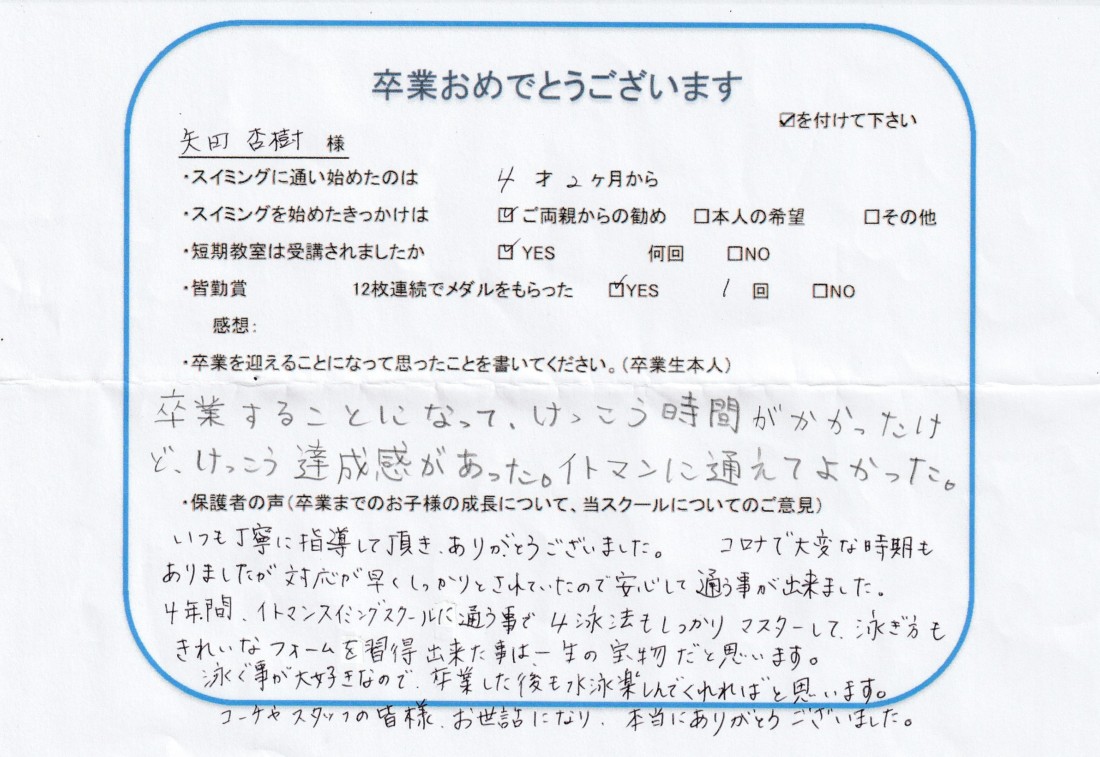 卒業おめでとうございます
☑を付けて下さい
矢田 杏樹 様
・スイミングに通い始めたのは 4 才 2 ヶ月から
・スイミングを始めたきっかけは ☑ご両親からの勧め □本人の希望 □その他
・短期教室は受講されましたか ☑YES 何回 □NO
・皆勤賞 12枚連続でメダルをもらった ☑YES 1 回 □NO
感想:
・卒業を迎えることになって思ったことを書いてください。(卒業生本人)
卒業することになって、けっこう時間がかかったけ
ど、けっこう達成感があった。イトマンに通えてよかった。
・保護者の声(卒業までのお子様の成長について、当スクールについてのご意見)
いつも丁寧に指導して頂き、ありがとうございました。 コロナで大変な時期も
ありましたが対応が早くしっかりとされていたので安心して通う事が出来ました。
4年間、イトマンスイミングスクールに通う事で4泳法もしっかりマスターして、泳ぎ方も
きれいなフォームを習得出来た事は、一生の宝物だと思います。
泳ぐ事が大好きなので、卒業した後も水泳楽しんでくれればと思います。
コーチやスタッフの皆様、お世話になり、本当にありがとうございました。